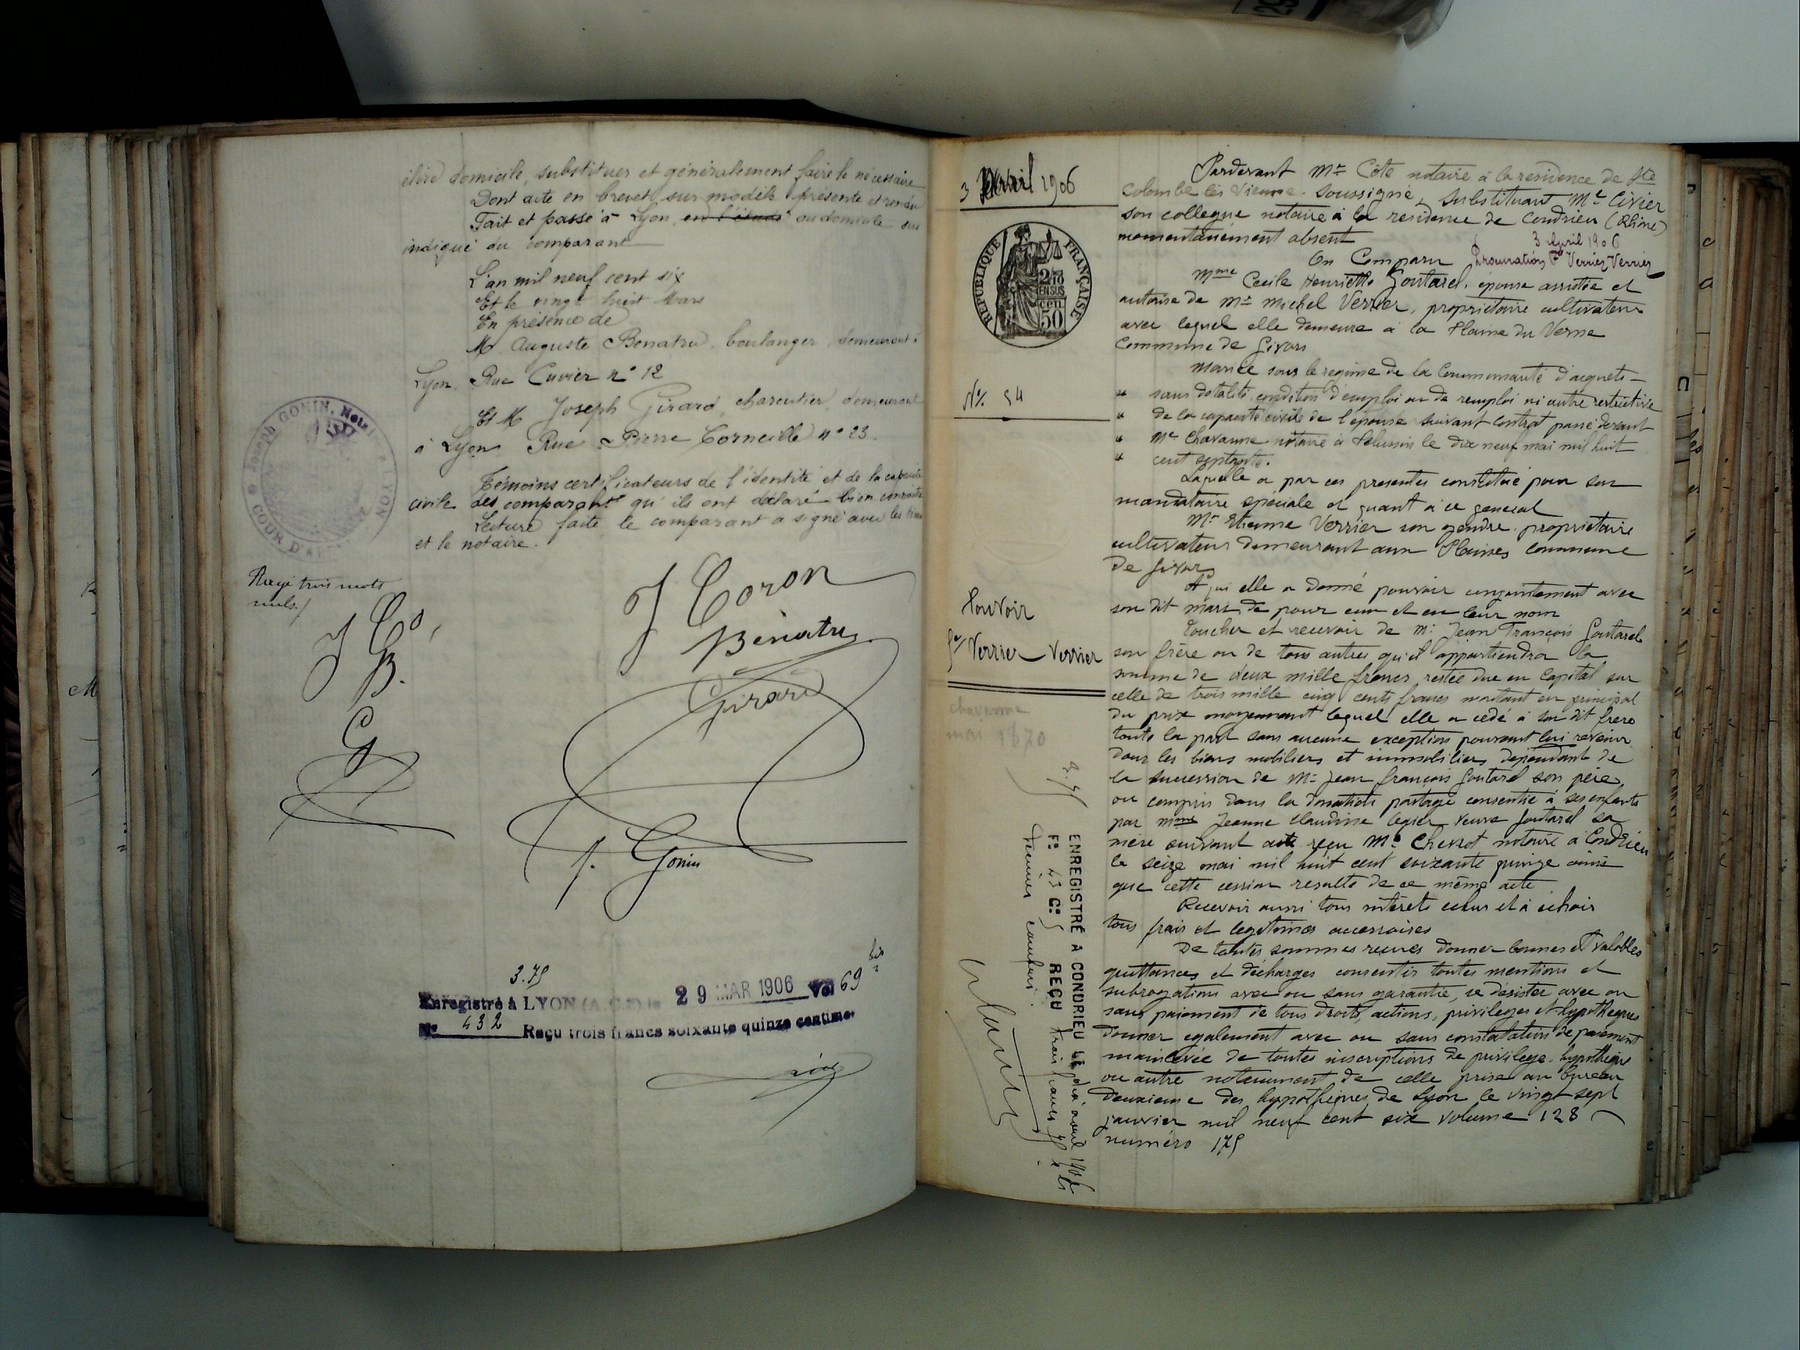 élire domicile, substituer et généralement faire le nécessaire
Dont acte en brevet sur modèle présenté et rendu
Fait et passé à Lyon, en l'étude au domicile sus
indiqué du comparant
L'an mil neuf cent six
Et le vingt huit Mars
En présence de
M Auguste Benatru, boulanger, demeurant à
Lyon, Rue Cuvier n° 12
Et M Joseph Girard, charcutier, demeurant
à Lyon Rue Pierre Corneille n° 23.
Témoins certificateurs de l'identité et de la capacité
civile des comparants qu'ils ont déclaré bien connaître
Lecture faite le comparant a signé avec les témoins
et le notaire.
Joseph GONIN, Not. LYON
COUR D'AP
Rayé trois mots
nuls
J C
B.
G
J Coron
Benatru
Girard
J. Gonin
3.75
Enregistré à LYON (A.C.) le 29 MAR 1906 Vol 69
N° 432 Reçu trois francs soixante quinze centimes
3 Avril 1906
RÉPUBLIQUE FRANÇAISE
2/10
EN SUS
50
N° 54
Pouvoir
Verrier Verrier
chavanne
mai 1870
ENREGISTRÉ A CONDRIEU LE avril 1906
F° 43 C° 5 REÇU trois francs
Pardevant Me Côte notaire à la residence de Ste
Colombe lès Vienne. soussigné, substituant Me Civier
son collegue notaire à la residence de Condrieu (Rhône)
momentanement absent
3 Avril 1906
On Comparu Procuration Verrier Verrier
Mme Cecile Henriette Goutarel, épouse assistée et
autorisée de Mr Michel Verrier, propriétaire cultivateur
avec lequel elle demeure à la Plaine du Verne
Commune de Givors
Mariée sous le regime de la Communauté d'acquets
" sans dotalité condition d'emploi ou de remploi ni autre restrictive
" de la capacité civile de l'épouse suivant contrat passé devant
" Me Chavanne notaire à Pelussin le dix neuf mai mil huit
" cent septante.
Laquelle a par ces presentes constitué pour son
mandataire spéciale et quant à ce general
Mr Etienne Verrier son gendre, propriétaire
cultivateur demeurant aux Plaines commune
de Givors
A qui elle a donné pouvoir conjointement avec
son dit mari, de pour eux et en leur nom
Toucher et recevoir de Mr Jean François Goutarel
son frère ou de tous autres qu'il appartiendra la
somme de deux mille francs, restée due en Capital sur
celle de trois mille cinq cents francs montant en principal
du prix moyennant lequel elle a cédé à son dit frere
toute la part sans aucune exception pouvant lui revenir
dans les biens mobiliers et immobiliers dépendant de
la succession de Mr Jean françois Goutarel son père
ou compris dans la donation partage consentie à ses enfants
par Mme Jeanne Claudine veuve Goutarel sa
mère suivant acte reçu Me Chessot notaire à Condrieu
le seize mai mil huit cent soixante quinze ainsi
que cette cession resulte de ce même acte
Recevoir aussi tous intérets echus et à echoir
tous frais et legitimes accessoires
De toutes sommes reçues donner bonnes et valables
quittances et décharges consentir toutes mentions et
subrogations avec ou sans garantie, se desister avec ou
sans paiement de tous droits, actions, privileges et hypothèques
donner egalement avec ou sans constatation de paiement
mainlevée de toutes inscriptions de privilege, hypothèque
ou autre notamment de celle prise au bureau
deuxieme des hypothèques de Lyon le vingt sept
janvier mil neuf cent six volume 128
numéro 175